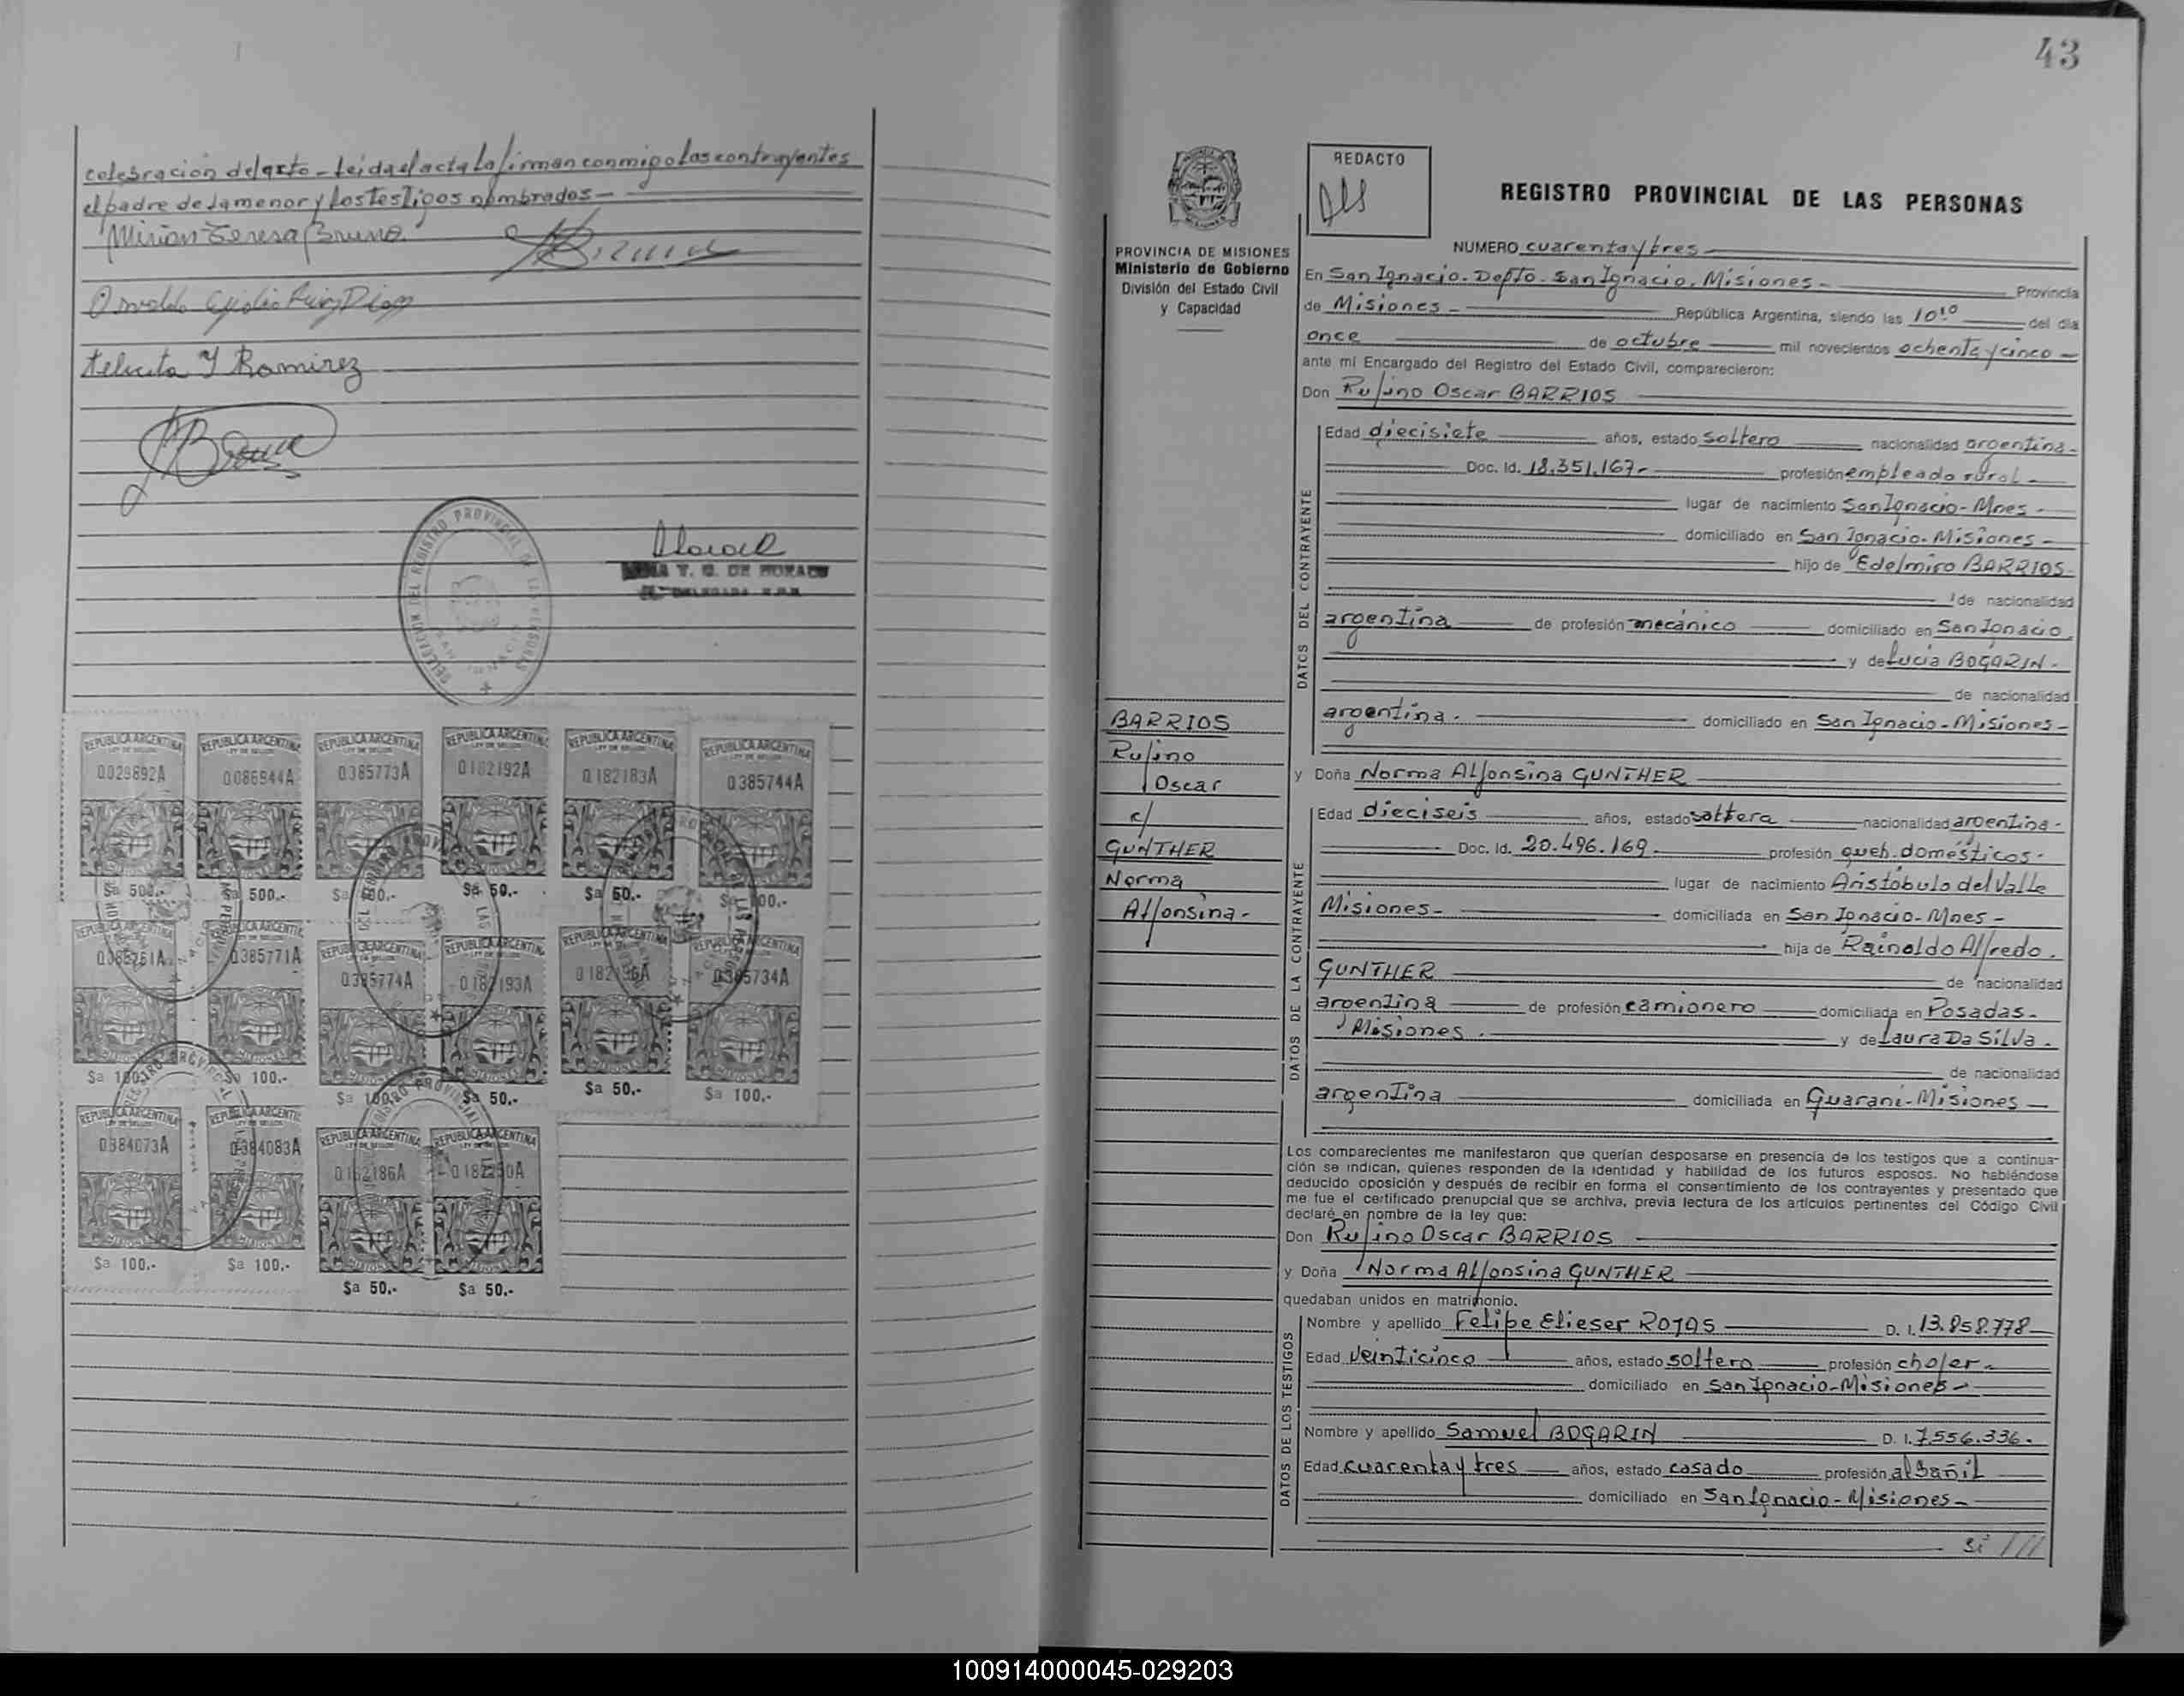 celebración del acto - Leída el acta la firman conmigo los contrayentes
el padre de la menor y los testigos nombrados -
Mirian Teresa Bruno.
Osvaldo
Ramirez
REPUBLICA ARGENTINA REPUBLICA ARGENTINA REPUBLICA ARGENTINA REPUBLICA ARGENTINA REPUBLICA ARGENTINA REPUBLICA ARGENTINA
0029892A 0086944A 0385773A 0182192A 0182183A 0385744A
$a 500.- $a 500.- $a $a 50.- $a 50.- $a
0385771A 0385774A 0182193A
$a 100.- $a 50.- $a 50.- $a 100.-
0384073A 0384083A
$a 100.- $a 100.-
$a 50.- $a 50.-
43
REDACTO
REGISTRO PROVINCIAL DE LAS PERSONAS
PROVINCIA DE MISIONES
Ministerio de Gobierno
División del Estado Civil
y Capacidad
NUMERO cuarenta y tres
En San Ignacio - Depto. San Ignacio. Misiones - Provincia
de Misiones - República Argentina, siendo las 10:10 del día
once de octubre mil novecientos ochenta y cinco -
ante mi Encargado del Registro del Estado Civil, comparecieron:
Don Rufino Oscar BARRIOS
DATOS DEL CONTRAYENTE
Edad diecisiete años, estado soltero nacionalidad argentina -
Doc. Id. 18.351.167 - profesión empleado rural -
lugar de nacimiento San Ignacio - Mnes -
domiciliado en San Ignacio - Misiones -
hijo de Edelmiro BARRIOS -
de nacionalidad
argentina de profesión mecánico domiciliado en San Ignacio
y de Lucia BOGARIN -
de nacionalidad
argentina - domiciliado en San Ignacio - Misiones -
BARRIOS
Rufino
Oscar
c/
GUNTHER
Norma
Alfonsina -
y Doña Norma Alfonsina GUNTHER
DATOS DE LA CONTRAYENTE
Edad dieciseis años, estado soltera nacionalidad argentina -
Doc. Id. 20.496.169 - profesión queh. domésticos -
lugar de nacimiento Aristóbulo del Valle
Misiones - domiciliada en San Ignacio - Mnes -
hija de Rainoldo Alfredo
GUNTHER de nacionalidad
argentina de profesión camionero domiciliada en Posadas -
Misiones - y de Laura Da Silva -
de nacionalidad
argentina domiciliada en Guaraní - Misiones -
Los comparecientes me manifestaron que querían desposarse en presencia de los testigos que a continua-
ción se indican, quienes responden de la identidad y habilidad de los futuros esposos. No habiéndose
deducido oposición y después de recibir en forma el consentimiento de los contrayentes y presentado que
me fue el certificado prenupcial que se archiva, previa lectura de los artículos pertinentes del Código Civil
declaré en nombre de la ley que:
Don Rufino Oscar BARRIOS
y Doña Norma Alfonsina GUNTHER
quedaban unidos en matrimonio.
DATOS DE LOS TESTIGOS
Nombre y apellido Felipe Elieser ROJAS D. I. 13.858.778
Edad veinticinco años, estado soltero profesión chofer -
domiciliado en San Ignacio - Misiones -
Nombre y apellido Samuel BOGARIN D. I. 7.556.336 -
Edad cuarenta y tres años, estado casado profesión albañil
domiciliado en San Ignacio - Misiones -
si ///
100914000045-029203